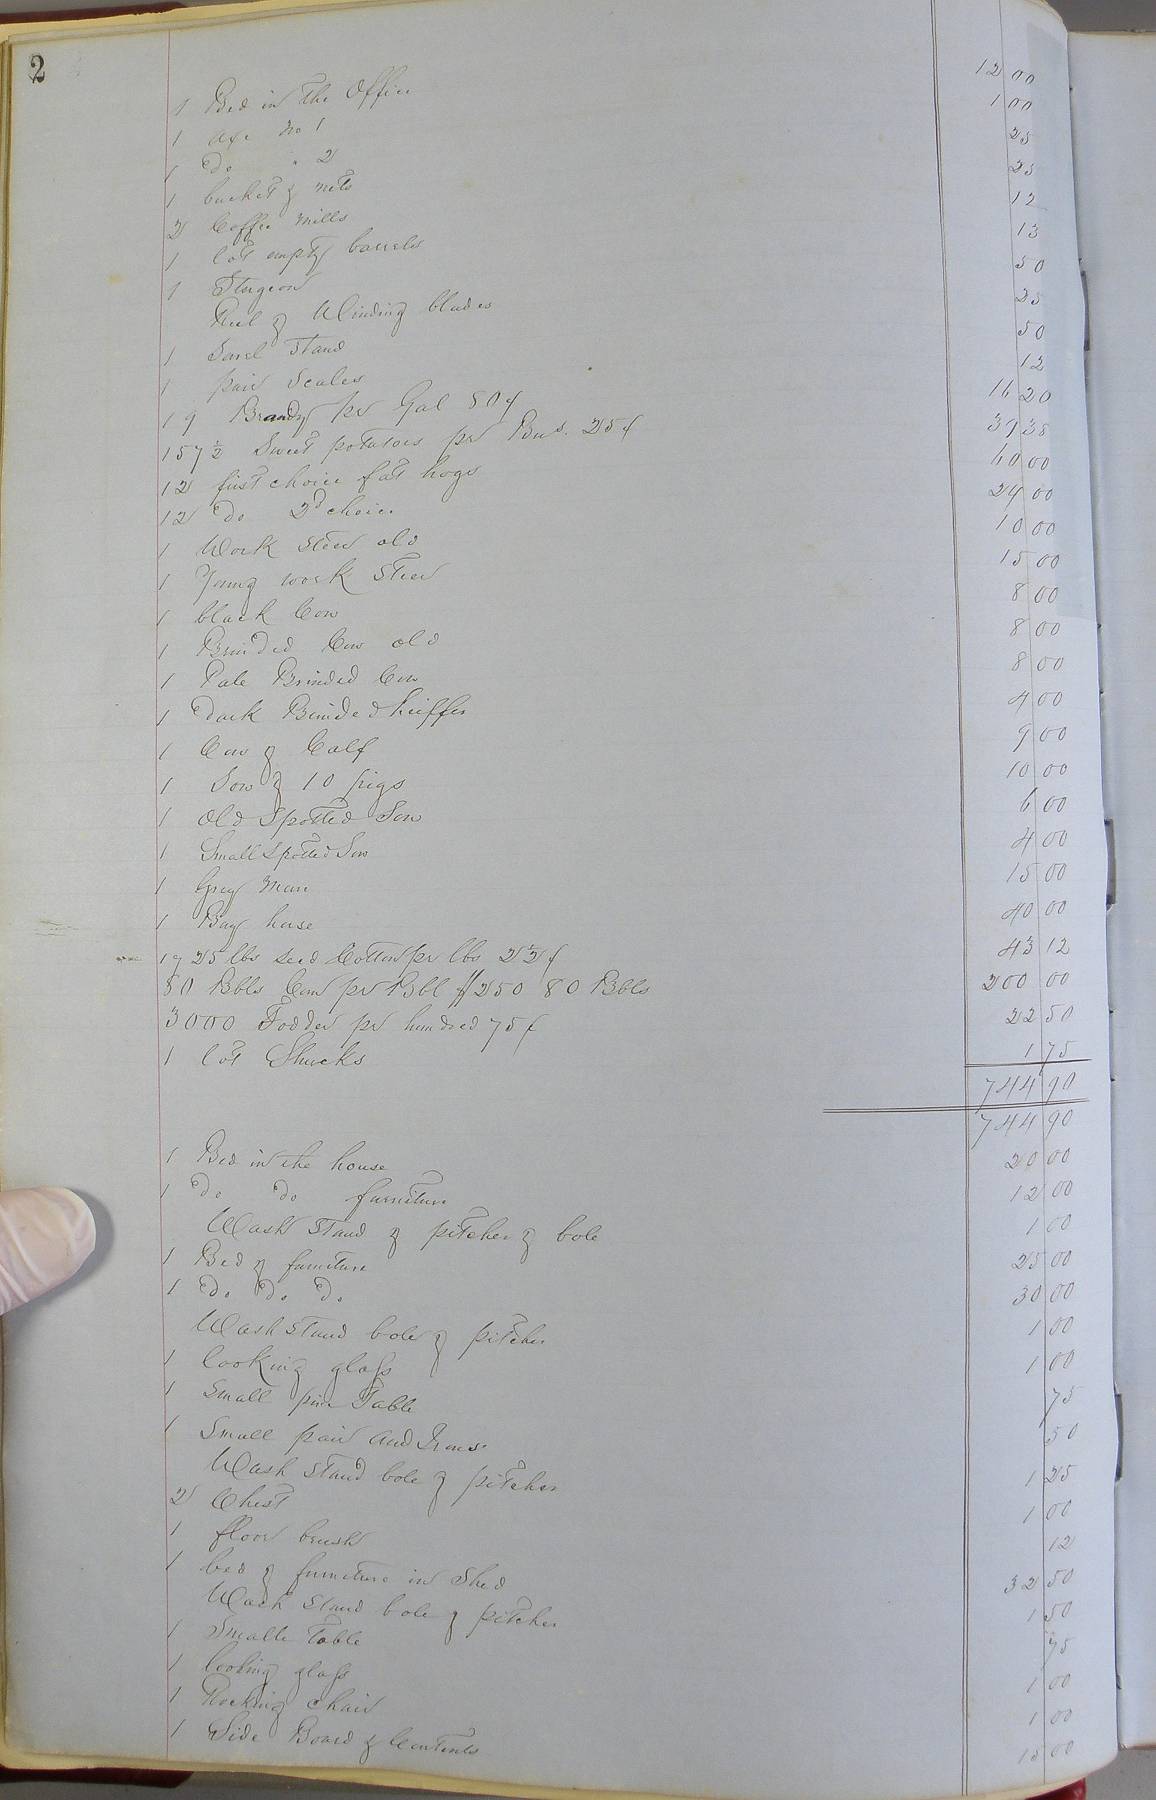 2
1 Bed in the Office 12 00
1 axe No 1 1 00
1 Do " 2 25
1 bucket & nets 25
2 Coffee mills 12
1 lot empty barrels 13
1 Sturgeon 50
Reel & Winding blades 25
1 stand 50
1 pair Scales 12
19 Brandy pr Gal 80¢ 16 20
157½ Sweet potatoes pr Bus. 25¢ 39 38
12 first choice fat hogs 60 00
12 Do 2d choice 24 00
1 Work Steer old 10 00
1 Young work Steer 15 00
1 black Cow 8 00
1 Brinded Cow old 8 00
1 Pale Brinded Cow 8 00
1 Dark Brinded heiffer 4 00
1 Cow & Calf 9 00
1 Sow & 10 pigs 10 00
1 Old Spotted Sow 6 00
1 Small Spotted Sow 4 00
1 Grey Mare 15 00
1 Bay horse 40 00
1725 lbs seed Cotton pr lbs 2½¢ 43 12
80 Bbls Corn pr Bbl $250 80 Bbls 200 00
3000 Fodder pr hundred 75¢ 22 50
1 lot Shucks 1 75
744 90
744 90
1 Bed in the house 20 00
1 Do Do furniture 12 00
Wash Stand & pitcher & bole 1 00
1 Bed & furniture 25 00
1 Do Do Do 30 00
Wash Stand bole & pitcher 1 00
1 looking glass 1 00
1 Small pine Table 75
1 Small pair And Irons 50
Wash Stand bole & pitcher 1 25
2 Chest 1 00
1 floor brush 12
1 bed & furniture in Shed 32 50
Wash Stand bole & pitcher 1 50
1 Smalle Table 75
1 looking glass 1 00
1 Rocking chair 1 00
1 Side Board & Contents 15 00